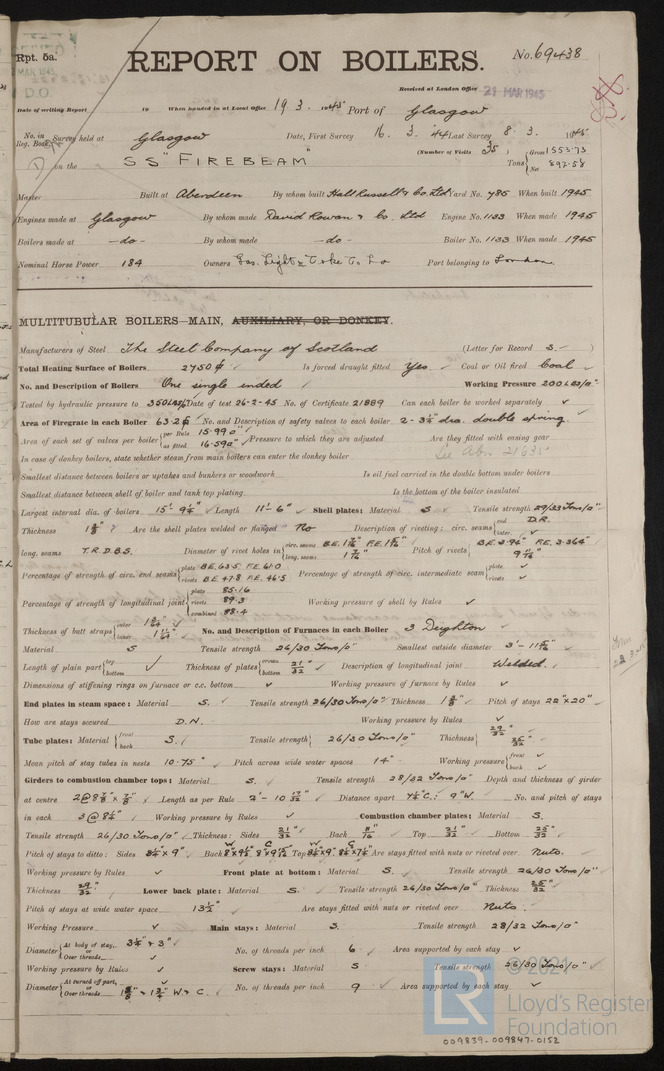 Rpt. 5a.
REPORT ON BOILERS.
No. 69438
Received at London Office 21 MAR 1945
D.O.
Date of writing Report 19 When handed in at Local Office 19 3. 1945 Port of Glasgow
No. in Reg. Book Survey held at Glasgow Date, First Survey 16. 3. '44 Last Survey 8. 3. 1945
on the SS "FIREBEAM" (Number of Visits 35) Tons { Gross 1553.73 Net 897.58
Master Built at Aberdeen By whom built Hall Russell & Co. Ltd Yard No. 785 When built 1945
Engines made at Glasgow By whom made David Rowan & Co. Ltd Engine No. 1133 When made 1945
Boilers made at - do - By whom made - do - Boiler No. 1133 When made 1945
Nominal Horse Power 184 Owners Gas. Light & Coke Co. Ld Port belonging to London.
MULTITUBULAR BOILERS—MAIN, AUXILIARY, OR DONKEY.
Manufacturers of Steel The Steel Company of Scotland (Letter for Record S. )
Total Heating Surface of Boilers 2750 Is forced draught fitted Yes. Coal or Oil fired Coal
No. and Description of Boilers One single ended Working Pressure 200 LBS/□"
Tested by hydraulic pressure to 350 LBS/□" Date of test 26-2-45 No. of Certificate 21889 Can each boiler be worked separately ✓
Area of Firegrate in each Boiler 63.2 No. and Description of safety valves to each boiler 2 - 3¼" dia. double spring.
Area of each set of valves per boiler { per Rule 15.99□" as fitted 16.59□" Pressure to which they are adjusted Are they fitted with easing gear
In case of donkey boilers, state whether steam from main boilers can enter the donkey boiler
Smallest distance between boilers or uptakes and bunkers or woodwork Is oil fuel carried in the double bottom under boilers
Smallest distance between shell of boiler and tank top plating Is the bottom of the boiler insulated
Largest internal dia. of boilers 15'- 9¼" Length 11'- 6" Shell plates: Material S Tensile strength 29/33 Tons/□"
Thickness Are the shell plates welded or flanged No Description of riveting: circ. seams { end D.R. inter. ✓
long. seams T.R.D.B.S. Diameter of rivet holes in { circ. seams long. seams Pitch of rivets { B.E. 3.96" F.E. 3.364"
Percentage of strength of circ. end seams { plate B.E. 63.5 F.E. 61.0 rivets B.E. 47.8 F.E. 46.5 Percentage of strength of circ. intermediate seam { plate ✓ rivets ✓
Percentage of strength of longitudinal joint { plate 85.16 rivets 89.3 combined 88.4 Working pressure of shell by Rules ✓
Thickness of butt straps { outer inner No. and Description of Furnaces in each Boiler 3 Deighton
Material S Tensile strength 26/30 Tons/□" Smallest outside diameter
Length of plain part { top bottom ✓ Thickness of plates { crown bottom 21/32" Description of longitudinal joint Welded.
Dimensions of stiffening rings on furnace or c.c. bottom ✓ Working pressure of furnace by Rules ✓
End plates in steam space: Material S. Tensile strength 26/30 Tons/□" Thickness Pitch of stays 22" x 20"
How are stays secured D.N. Working pressure by Rules ✓
Tube plates: Material { front back S. Tensile strength { 26/30 Tons/□" Thickness { 29/32" 25/32"
Mean pitch of stay tubes in nests 10.75" Pitch across wide water spaces 14" Working pressure { front ✓ back ✓
Girders to combustion chamber tops: Material S. Tensile strength 28/32 Tons/□" Depth and thickness of girder
at centre 2@8⅞" x ⅞" Length as per Rule 2'- 10 17/32" Distance apart No. and pitch of stays
in each 3@8¼" Working pressure by Rules ✓ Combustion chamber plates: Material S.
Tensile strength 26/30 Tons/□" Thickness: Sides 21/32" Back 11/16" Top 21/32" Bottom 25/32"
Pitch of stays to ditto: Sides Back Top Are stays fitted with nuts or riveted over Nuts.
Working pressure by Rules ✓ Front plate at bottom: Material S. Tensile strength 26/30 Tons/□"
Thickness 29/32" Lower back plate: Material S. Tensile strength 26/30 Tons/□" Thickness 25/32"
Pitch of stays at wide water space 13½" Are stays fitted with nuts or riveted over Nuts.
Working Pressure ✓ Main stays: Material S. Tensile strength 28/32 Tons/□"
Diameter { At body of stay, or Over threads 3¼" & 3" No. of threads per inch 6 Area supported by each stay ✓
Working pressure by Rules ✓ Screw stays: Material S Tensile strength 26/30 Tons/□"
Diameter { At turned off part, or Over threads W & C. No. of threads per inch 9 Area supported by each stay ✓
© 2021
LR
Lloyd's Register
Foundation
009839-009847-0152